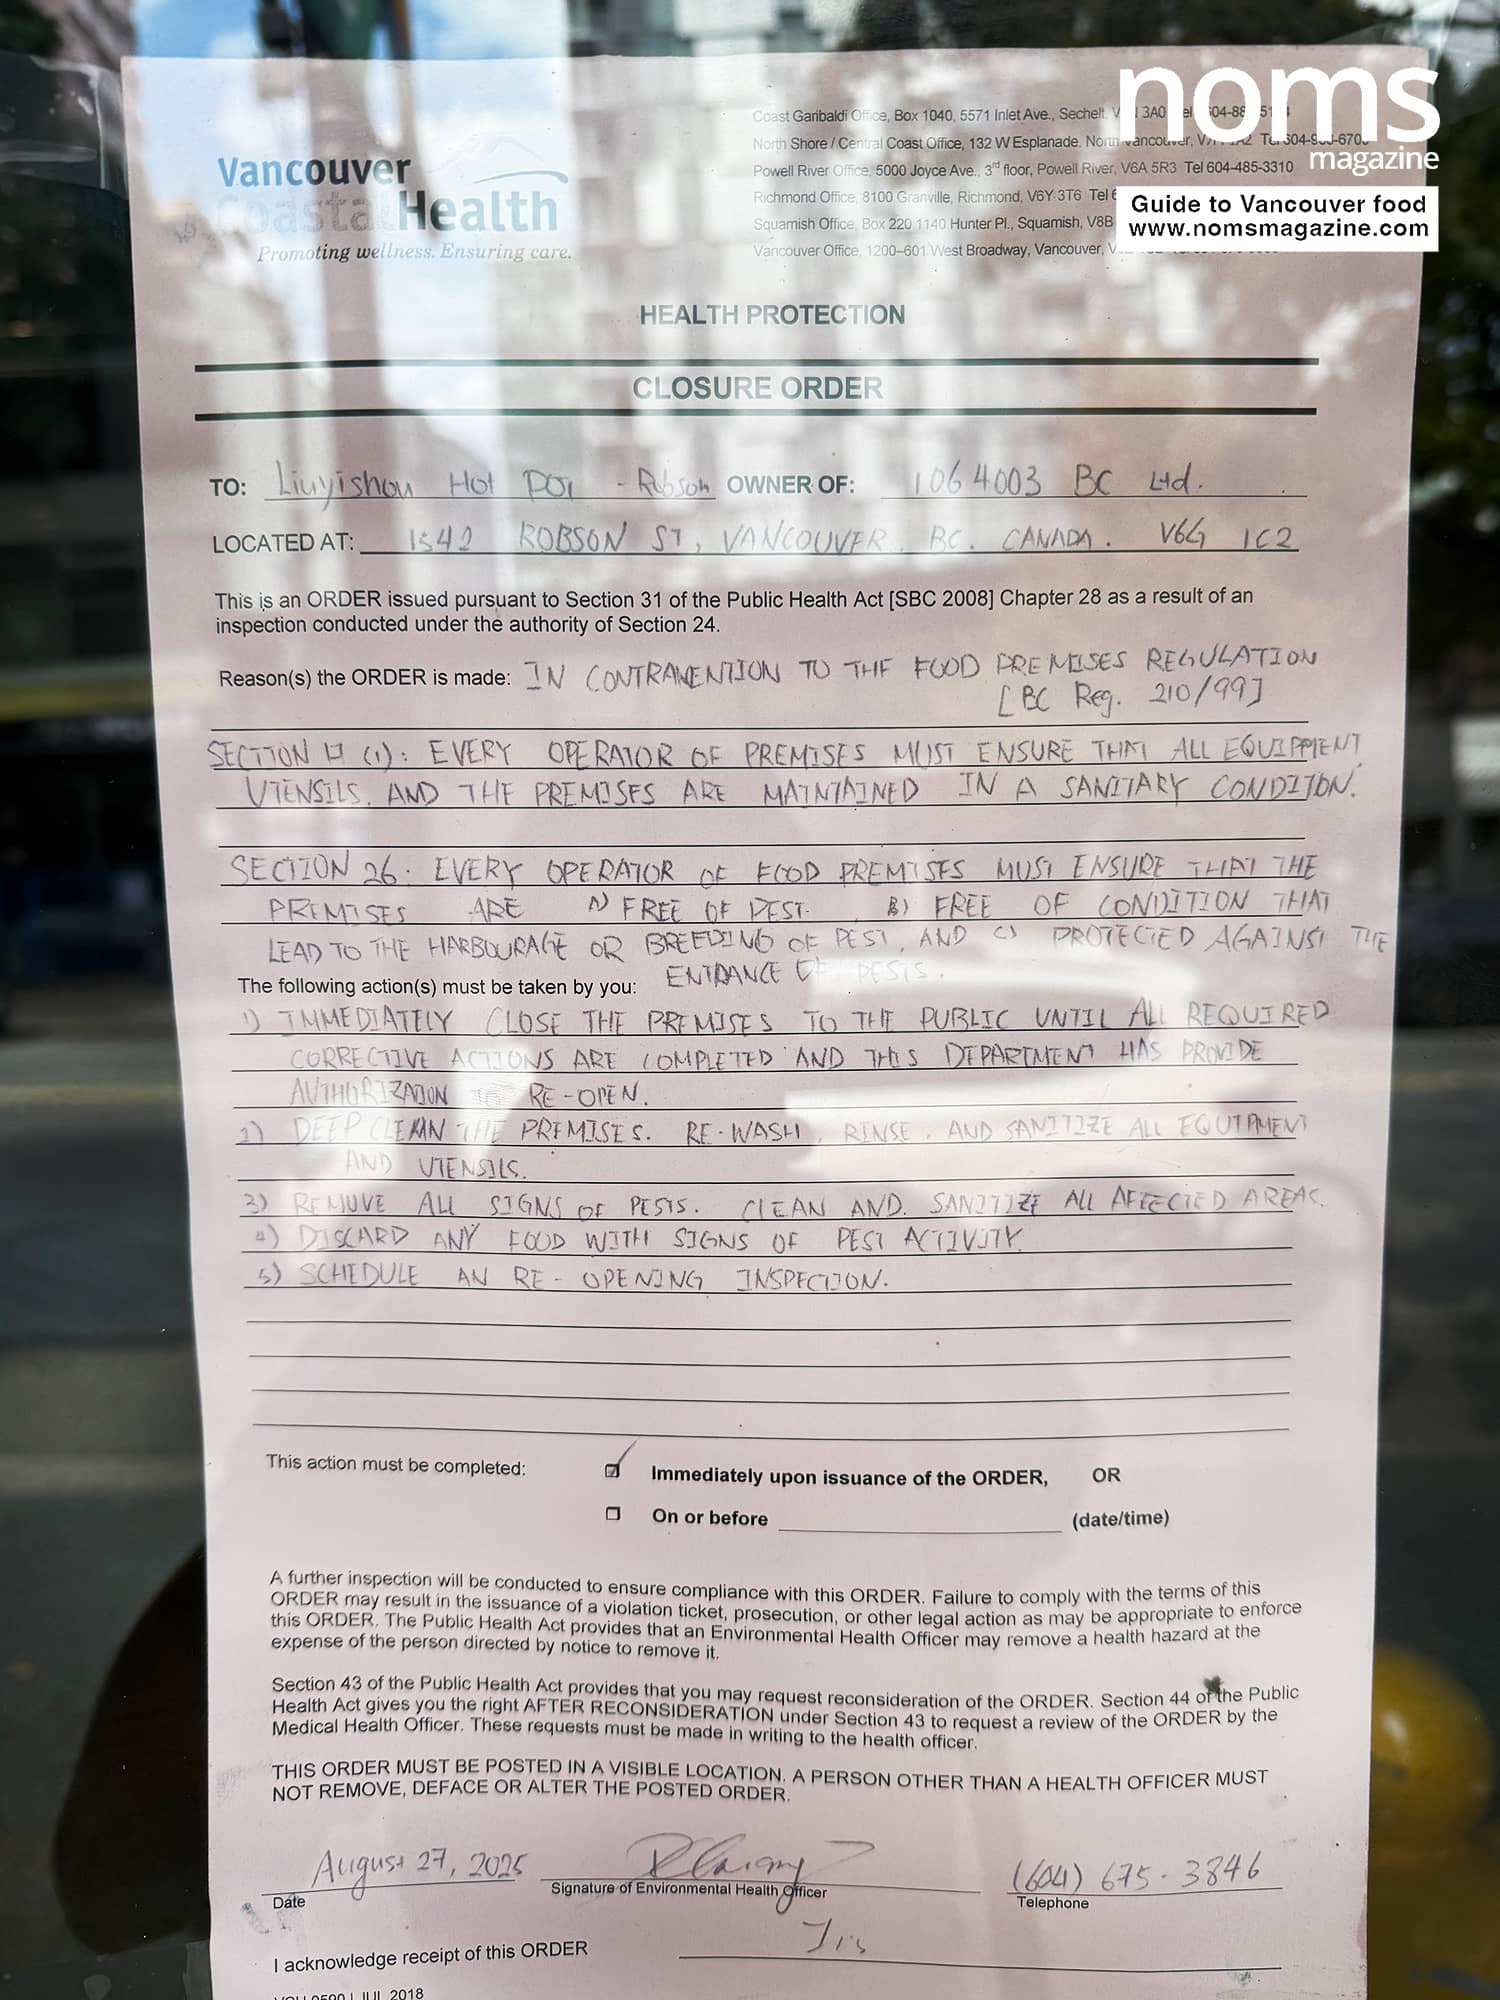 noms
magazine
Guide to Vancouver food
www.nomsmagazine.com
Vancouver
Coastal Health
Promoting wellness. Ensuring care.
Coast Garibaldi Office, Box 1040, 5571 Inlet Ave., Sechelt, 3A0
North Shore / Central Coast Office, 132 W Esplanade, North Vancouver,
Powell River Office, 5000 Joyce Ave., 3rd floor, Powell River, V6A 5R3 Tel 604-485-3310
Richmond Office, 8100 Granville, Richmond, V6Y 3T6 Tel
Squamish Office, Box 220 1140 Hunter Pl., Squamish, V8B
Vancouver Office, 1200–601 West Broadway, Vancouver,
HEALTH PROTECTION
CLOSURE ORDER
TO: Liuyishou Hot Pot - Robson OWNER OF: 1064003 BC Ltd.
LOCATED AT: 1542 ROBSON ST, VANCOUVER, BC. CANADA. V6G 1C2
This is an ORDER issued pursuant to Section 31 of the Public Health Act [SBC 2008] Chapter 28 as a result of an
inspection conducted under the authority of Section 24.
Reason(s) the ORDER is made: IN CONTRAVENTION TO THE FOOD PREMISES REGULATION
[BC Reg. 210/99]
SECTION 17 (1): EVERY OPERATOR OF PREMISES MUST ENSURE THAT ALL EQUIPMENT,
UTENSILS, AND THE PREMISES ARE MAINTAINED IN A SANITARY CONDITION.
SECTION 26: EVERY OPERATOR OF FOOD PREMISES MUST ENSURE THAT THE
PREMISES ARE A) FREE OF PEST. B) FREE OF CONDITION THAT
LEAD TO THE HARBOURAGE OR BREEDING OF PEST, AND C) PROTECTED AGAINST THE
ENTRANCE OF PESTS.
The following action(s) must be taken by you:
1) IMMEDIATELY CLOSE THE PREMISES TO THE PUBLIC UNTIL ALL REQUIRED
CORRECTIVE ACTIONS ARE COMPLETED AND THIS DEPARTMENT HAS PROVIDE
AUTHORIZATION TO RE-OPEN.
2) DEEP CLEAN THE PREMISES. RE-WASH, RINSE, AND SANITIZE ALL EQUIPMENT
AND UTENSILS.
3) REMOVE ALL SIGNS OF PESTS. CLEAN AND SANITIZE ALL AFFECTED AREAS.
4) DISCARD ANY FOOD WITH SIGNS OF PEST ACTIVITY.
5) SCHEDULE AN RE-OPENING INSPECTION.
This action must be completed: Immediately upon issuance of the ORDER, OR
On or before (date/time)
A further inspection will be conducted to ensure compliance with this ORDER. Failure to comply with the terms of this
ORDER may result in the issuance of a violation ticket, prosecution, or other legal action as may be appropriate to enforce
this ORDER. The Public Health Act provides that an Environmental Health Officer may remove a health hazard at the
expense of the person directed by notice to remove it.
Section 43 of the Public Health Act provides that you may request reconsideration of the ORDER. Section 44 of the Public
Health Act gives you the right AFTER RECONSIDERATION under Section 43 to request a review of the ORDER by the
Medical Health Officer. These requests must be made in writing to the health officer.
THIS ORDER MUST BE POSTED IN A VISIBLE LOCATION. A PERSON OTHER THAN A HEALTH OFFICER MUST
NOT REMOVE, DEFACE OR ALTER THE POSTED ORDER.
August 27, 2025 (604) 675-3846
Date Signature of Environmental Health Officer Telephone
I acknowledge receipt of this ORDER
JUL 2018